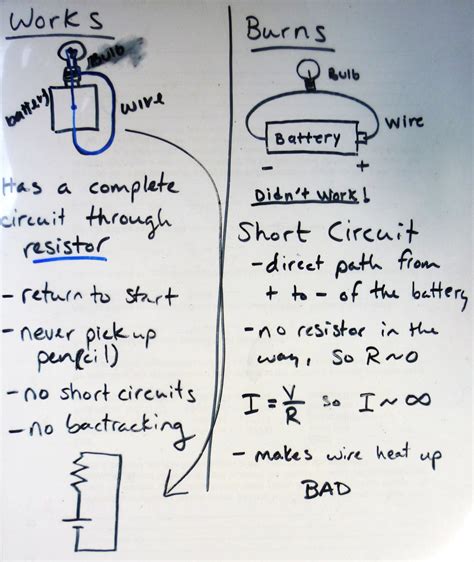 Works
Bulb
battery
wire
Has a complete
circuit through
resistor
- return to start
- never pick up
pen(cil)
- no short circuits
- no bactracking
Burns
Bulb
wire
Battery
- +
Didn't work!
Short Circuit
- direct path from
+ to - of the battery
- no resistor in the
way, so R~0
I = V/R so I ~ ∞
- makes wire heat up
BAD